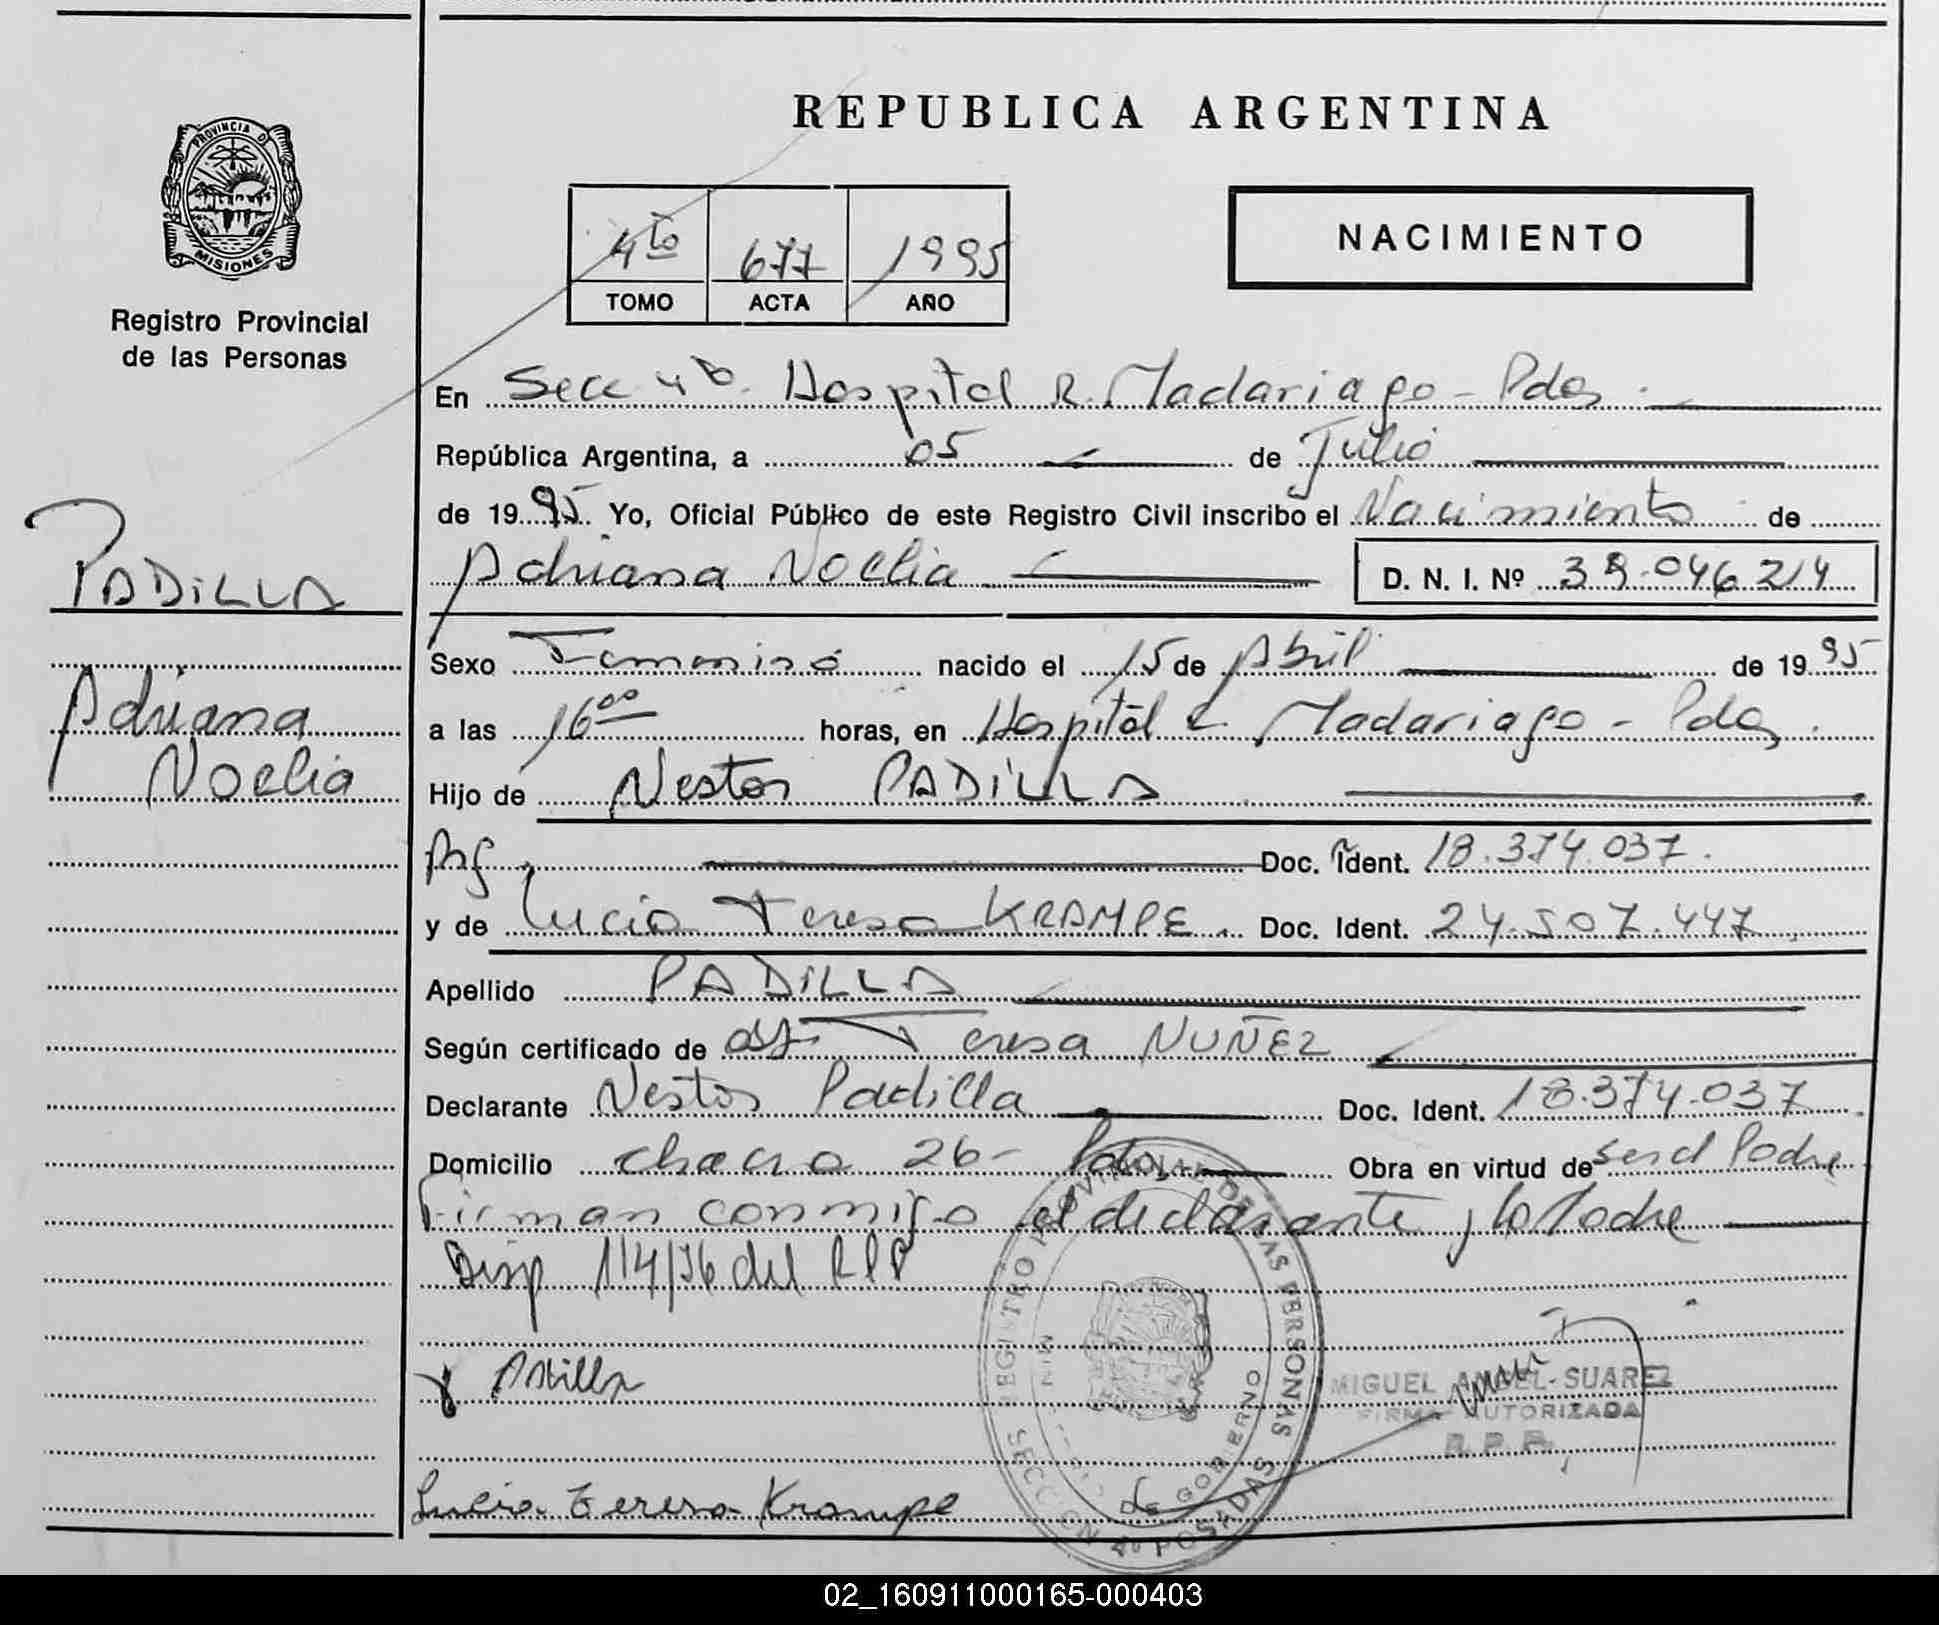 REPUBLICA ARGENTINA
PROVINCIA DE
MISIONES
Registro Provincial
de las Personas
4to 677 1995
TOMO ACTA AÑO
NACIMIENTO
En Secc 4ta. Hospital R. Madariaga - Pdas.
República Argentina, a 05 de Julio
de 1995 Yo, Oficial Público de este Registro Civil inscribo el Nacimiento de
Adriana Noelia D. N. I. Nº 39.046.214
PADILLA
Adriana
Noelia
Sexo Femenino nacido el 15 de Abril de 1995
a las 16 00 horas, en Hospital R. Madariaga - Pdas.
Hijo de Nestor PADILLA
Arg. Doc. Ident. 18.374.037.
y de Lucia Teresa KRAMPE. Doc. Ident. 24.507.447
Apellido PADILLA
Según certificado de Teresa NUÑEZ
Declarante Nestor Padilla Doc. Ident. 18.374.037
Domicilio chacra 26- Pdas. Obra en virtud de ser el Padre
Firman conmigo el declarante y la Madre
Disp 114/76 del RPP
Padilla
MIGUEL ANGEL SUAREZ
FIRMA AUTORIZADA
R. P. P.
Lucia Teresa Krampe
REGISTRO PROVINCIAL DE LAS PERSONAS
SECCION 4º POSADAS
DE GOBIERNO
02_160911000165-000403